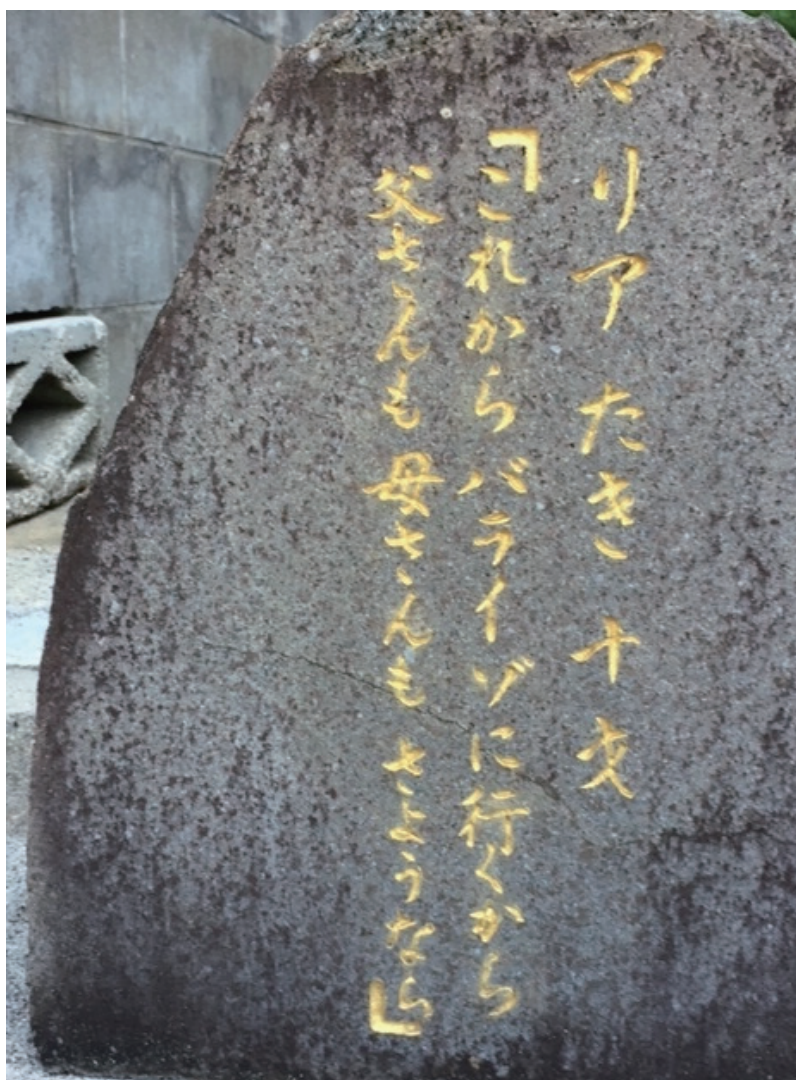 マリア たき 十才
「これから バライゾに行くから
父さんも 母さんも さようなら」